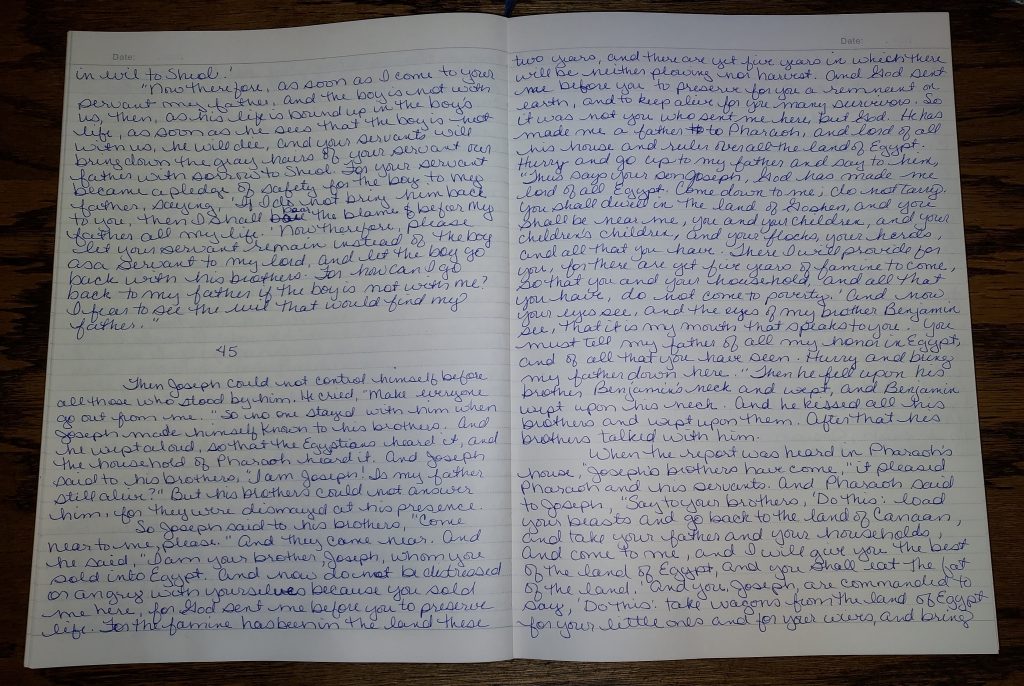 Date:
in evil to Sheol.'
"Now therefore, as soon as I come to your
servant my father, and the boy is not with
us, then, as his life is bound up in the boy's
life, as soon as he sees that the boy is not
with us, he will die, and your servants will
bring down the gray hairs of your servant our
father with sorrow to Sheol. For your servant
became a pledge of safety for the boy to my
father, saying, 'If I do not bring him back
to you, then I shall bear the blame before my
father all my life.' Now therefore, please
let your servant remain instead of the boy
as a servant to my lord, and let the boy go
back with his brothers. For how can I go
back to my father if the boy is not with me?
I fear to see the evil that would find my
father."
45
Then Joseph could not control himself before
all those who stood by him. He cried, "Make everyone
go out from me." So no one stayed with him when
Joseph made himself known to his brothers. And
he wept aloud, so that the Egyptians heard it, and
the household of Pharaoh heard it. And Joseph
said to his brothers, "I am Joseph! Is my father
still alive?" But his brothers could not answer
him, for they were dismayed at his presence.
So Joseph said to his brothers, "Come
near to me, please." And they came near. And
he said, "I am your brother, Joseph, whom you
sold into Egypt. And now do not be distressed
or angry with yourselves because you sold
me here, for God sent me before you to preserve
life. For the famine has been in the land these
Date:
two years, and there are yet five years in which there
will be neither plowing nor harvest. And God sent
me before you to preserve for you a remnant on
earth, and to keep alive for you many survivors. So
it was not you who sent me here, but God. He has
made me a father to Pharaoh, and lord of all
his house and ruler over all the land of Egypt.
Hurry and go up to my father and say to him,
"Thus says your son Joseph, God has made me
lord of all Egypt. Come down to me; do not tarry.
You shall dwell in the land of Goshen, and you
shall be near me, you and your children, and your
children's children, and your flocks, your herds,
and all that you have. There I will provide for
you, for there are yet five years of famine to come,
so that you and your household, and all that
you have, do not come to poverty.' And now
your eyes see, and the eyes of my brother Benjamin
see, that it is my mouth that speaks to you. You
must tell my father of all my honor in Egypt,
and of all that you have seen. Hurry and bring
my father down here." Then he fell upon his
brother Benjamin's neck and wept, and Benjamin
wept upon his neck. And he kissed all his
brothers and wept upon them. After that his
brothers talked with him.
When the report was heard in Pharaoh's
house, "Joseph's brothers have come," it pleased
Pharaoh and his servants. And Pharaoh said
to Joseph, "Say to your brothers, 'Do this: load
your beasts and go back to the land of Canaan,
and take your father and your households,
and come to me, and I will give you the best
of the land of Egypt, and you shall eat the fat
of the land.' And you, Joseph, are commanded to
say, 'Do this: take wagons from the land of Egypt
for your little ones and for your wives, and bring